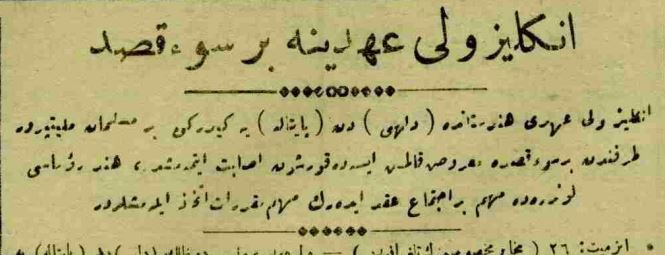 انكليز ولى عهدينه بر سوء قصد
انكليز ولى عهدى هندستانده ( دلهى ) دن ( پايتاله ) يه كيدركن بر مسلمان مليتپرور
طرفندن بر سوء قصده معروض قالمش ايسه ده قورشون اصابت ايتمه مشدر ، هند رؤساسى
لوزره ده مهم بر اجتماع عقد ايده رك مهم مقررات اتخاذ ايله مشلردر
ازميت : ٢٦ ( مخابر مخصوصمزك تلغرافيدر ) —